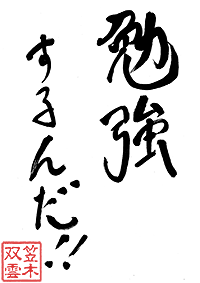 勉強
するんだ!!
笠木
双雲